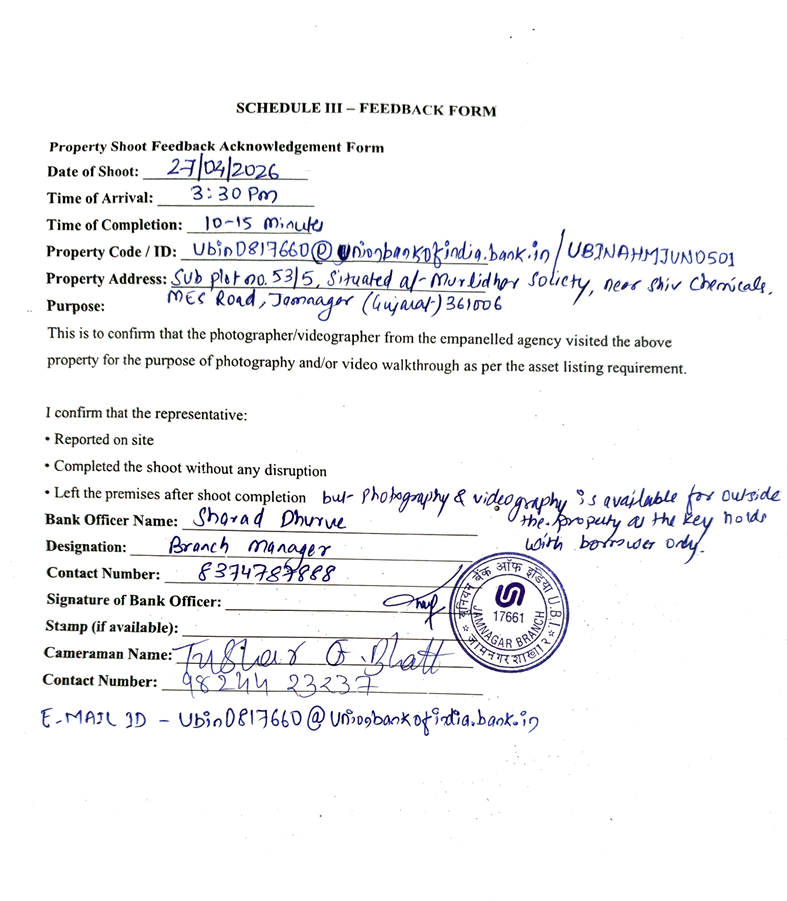 SCHEDULE III – FEEDBACK FORM
Property Shoot Feedback Acknowledgement Form
Date of Shoot: 27/04/2026
Time of Arrival: 3:30 Pm
Time of Completion: 10-15 Minutes
Property Code / ID: Ubin0817660@Unionbankofindia.bank.in / UBINAHMJUN0501
Property Address: Sub plot no. 53/5, Situated at Murlidhar Soliety, near Shiv Chemicals,
Purpose: MES Road, Jamnagar (Gujarat) 361006
This is to confirm that the photographer/videographer from the empanelled agency visited the above
property for the purpose of photography and/or video walkthrough as per the asset listing requirement.
I confirm that the representative:
• Reported on site
• Completed the shoot without any disruption
• Left the premises after shoot completion but photography & videography is available for outside
the property as the key holds
with borrower only.
Bank Officer Name: Sharad Dhurve
Designation: Branch Manager
Contact Number: 8374787888
Signature of Bank Officer:
Stamp (if available):
यूनियन बैंक ऑफ इंडिया U.B.I.
17661
JAMNAGAR BRANCH
जामनगर शाखा
Cameraman Name: Tushar G. Bhatt
Contact Number: 98244 23237
E-MAIL ID - Ubin0817660@Unionbankofindia.bank.in